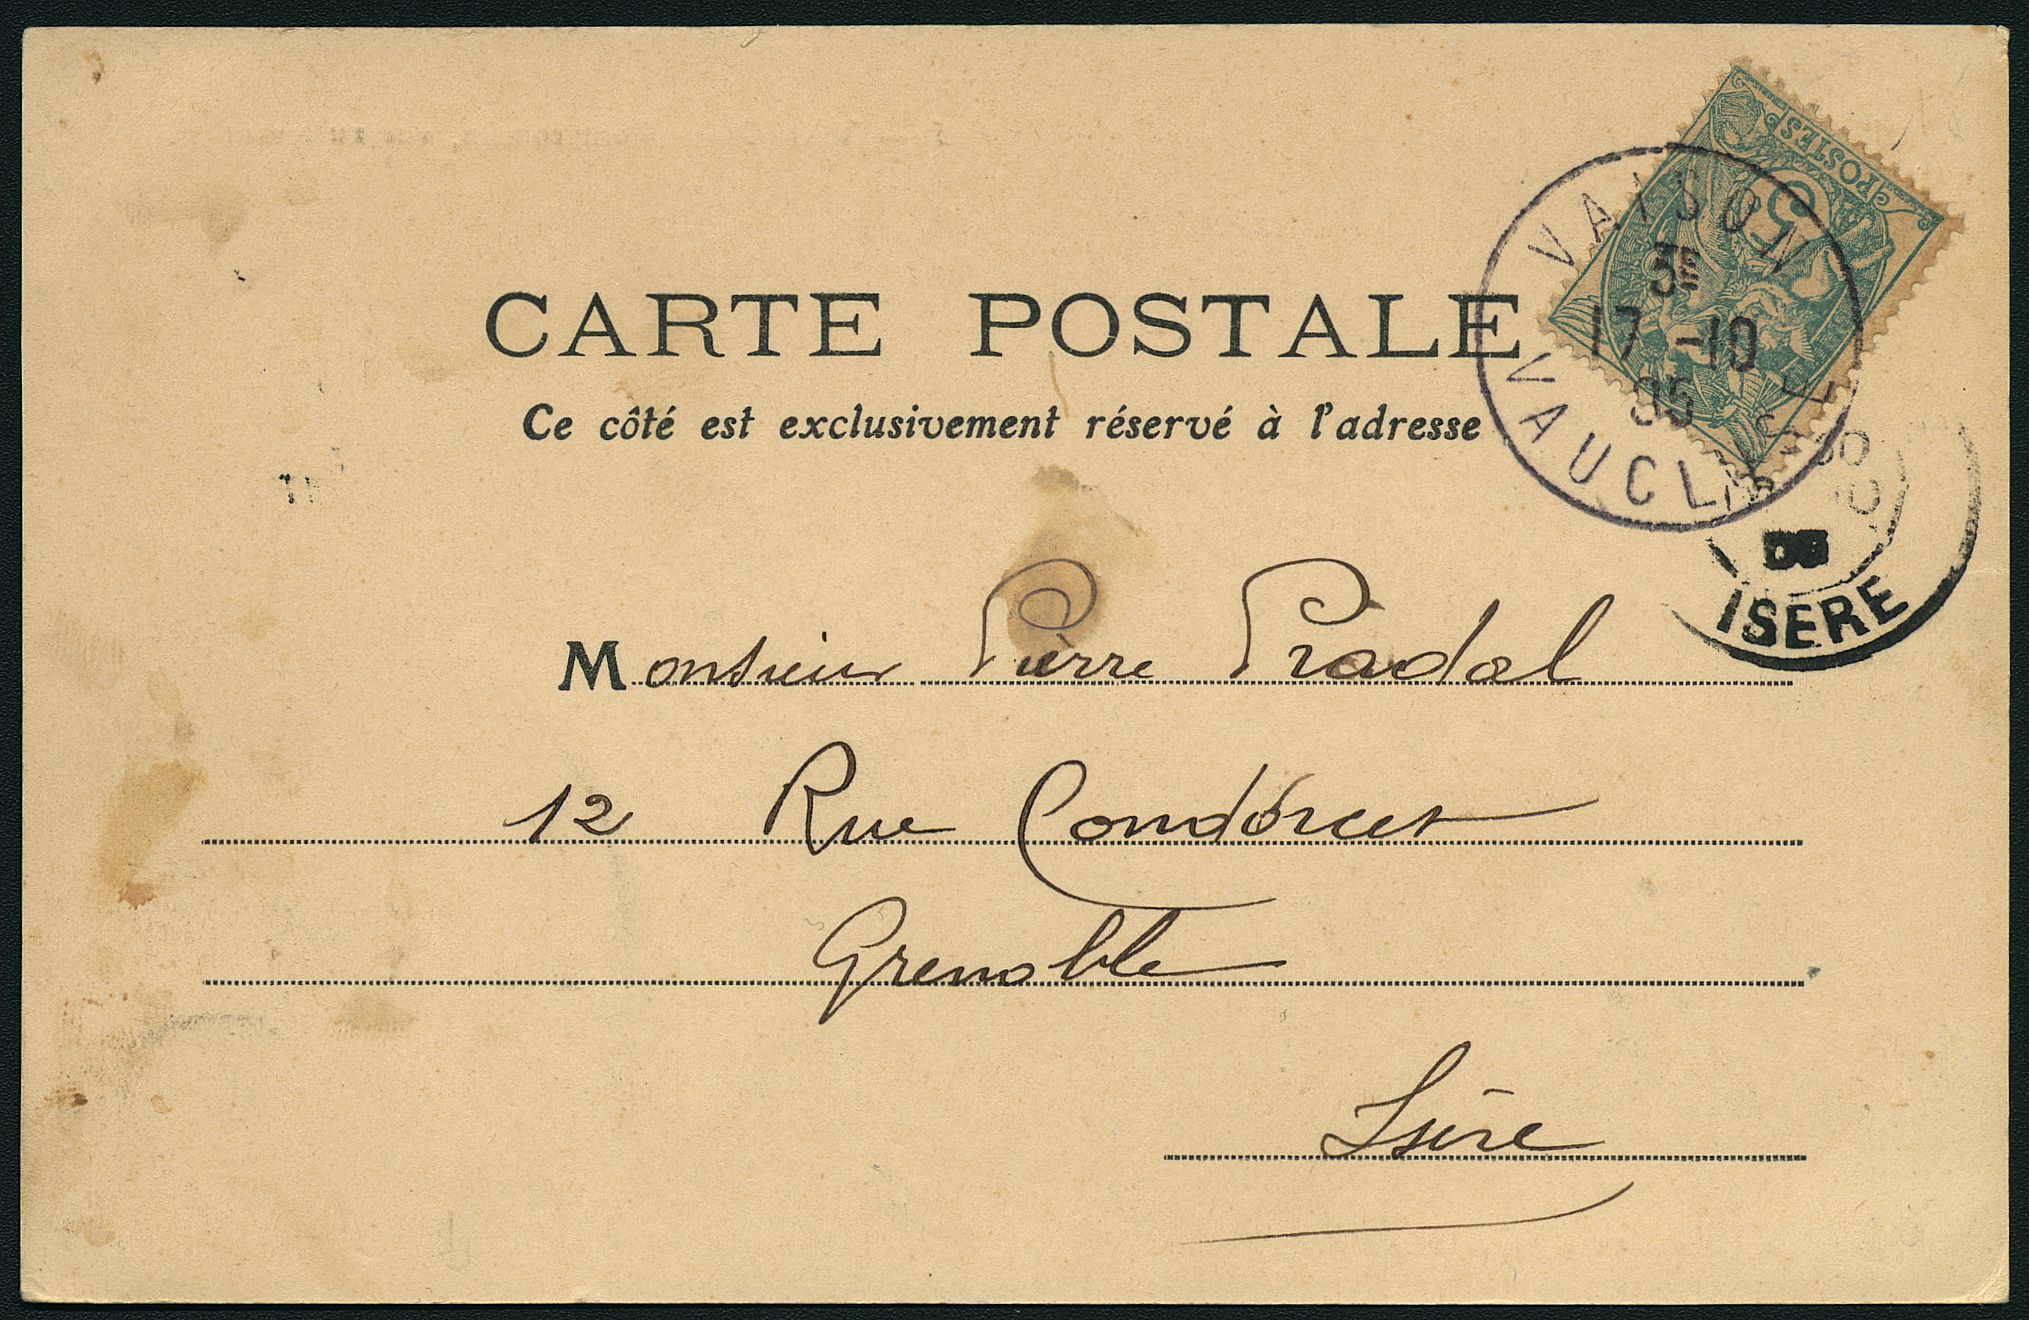 POSTES
5
VAISON
3E
17 -10
05
VAUCL
CARTE POSTALE
Ce côté est exclusivement réservé à l'adresse
05
ISERE
Monsieur Pièrre Pradal
12 Rue Condorcet
Grenoble
Isère